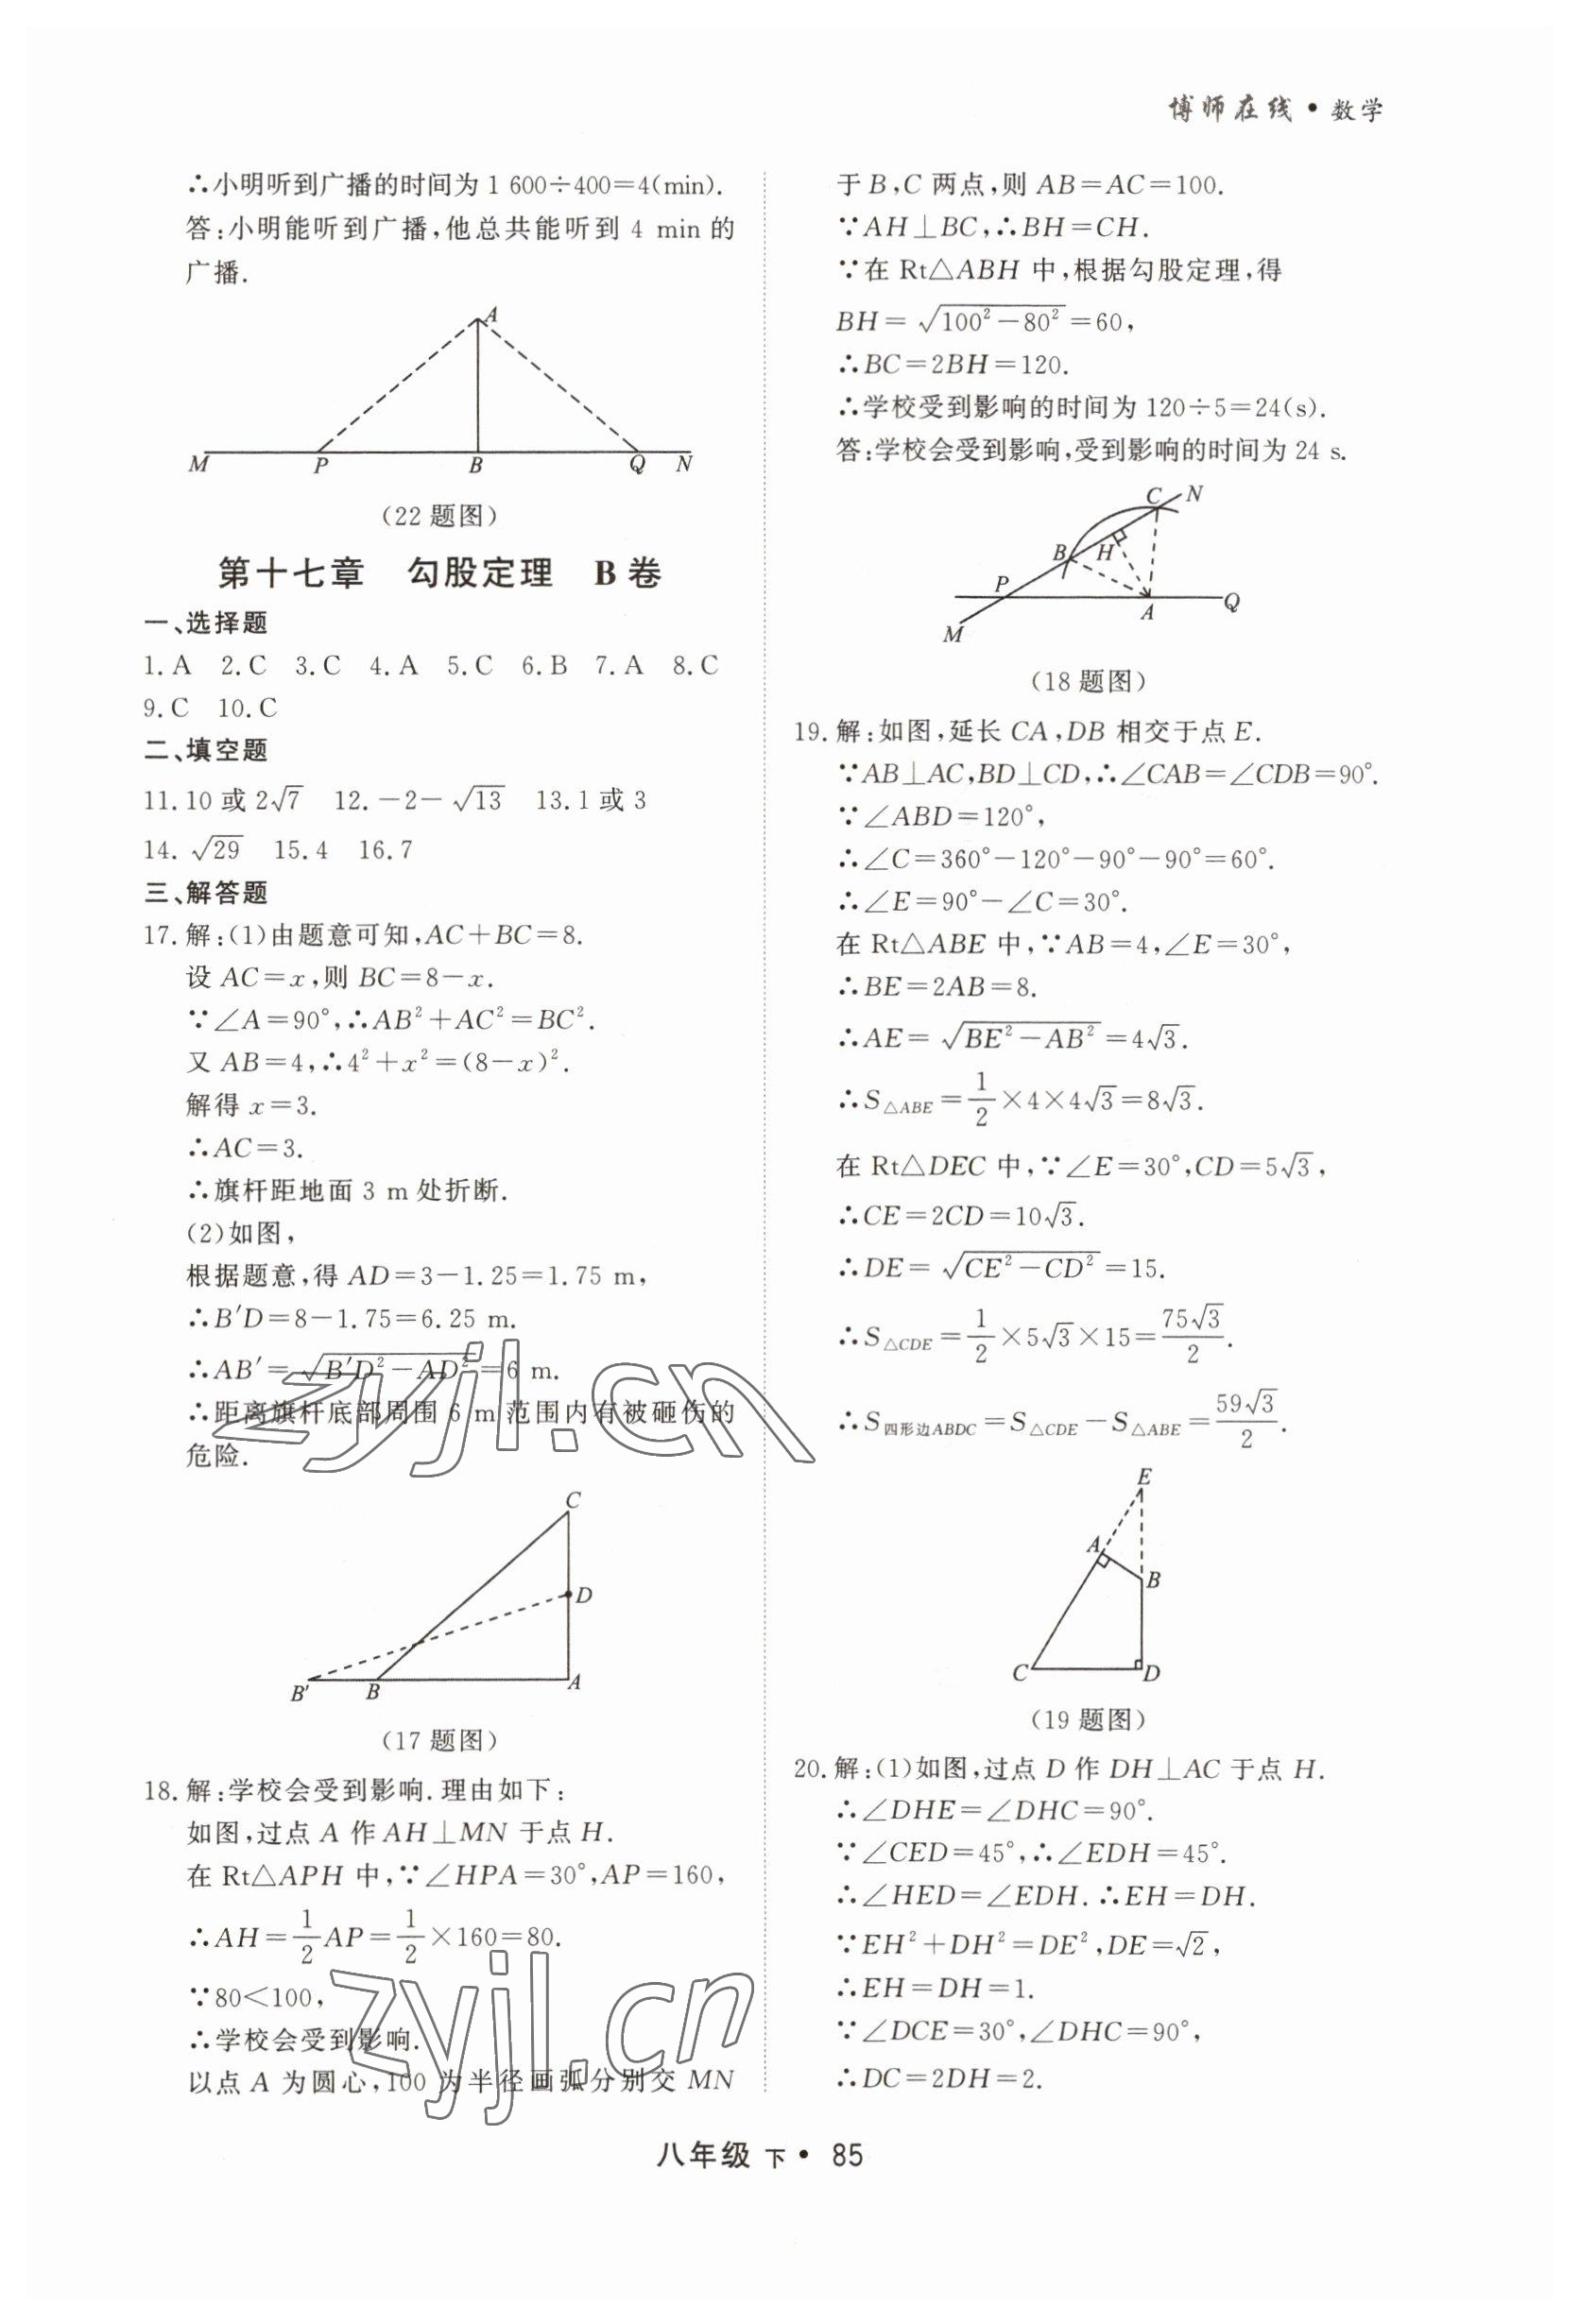 博师在线·数学
∴小明听到广播的时间为 1 600÷400=4(min).
答:小明能听到广播,他总共能听到 4 min 的
广播.
A
M P B Q N
(22 题图)
第十七章 勾股定理 B 卷
一、选择题
1.A 2.C 3.C 4.A 5.C 6.B 7.A 8.C
9.C 10.C
二、填空题
11.10 或 2√7 12.-2-√13 13.1 或 3
14.√29 15.4 16.7
三、解答题
17.解:(1)由题意可知,AC+BC=8.
设 AC=x,则 BC=8-x.
∵∠A=90°,∴AB²+AC²=BC².
又 AB=4,∴4²+x²=(8-x)².
解得 x=3.
∴AC=3.
∴旗杆距地面 3 m 处折断.
(2)如图,
根据题意,得 AD=3-1.25=1.75 m,
∴B′D=8-1.75=6.25 m.
∴AB′=√(B′D²-AD²)=6 m.
∴距离旗杆底部周围 6 m 范围内有被砸伤的
危险.
zyjl.cn
C
D
B′ B A
(17 题图)
18.解:学校会受到影响.理由如下:
如图,过点 A 作 AH⊥MN 于点 H.
在 Rt△APH 中,∵∠HPA=30°,AP=160,
∴AH=1/2 AP=1/2×160=80.
∵80<100,
∴学校会受到影响.
以点 A 为圆心,100 为半径画弧分别交 MN
zyjl.cn
于 B,C 两点,则 AB=AC=100.
∵AH⊥BC,∴BH=CH.
∵在 Rt△ABH 中,根据勾股定理,得
BH=√(100²-80²)=60,
∴BC=2BH=120.
∴学校受到影响的时间为 120÷5=24(s).
答:学校会受到影响,受到影响的时间为 24 s.
C N
B H
P
A Q
M
(18 题图)
19.解:如图,延长 CA,DB 相交于点 E.
∵AB⊥AC,BD⊥CD,∴∠CAB=∠CDB=90°.
∵∠ABD=120°,
∴∠C=360°-120°-90°-90°=60°.
∴∠E=90°-∠C=30°.
在 Rt△ABE 中,∵AB=4,∠E=30°,
∴BE=2AB=8.
∴AE=√(BE²-AB²)=4√3.
∴S△ABE=1/2×4×4√3=8√3.
在 Rt△DEC 中,∵∠E=30°,CD=5√3,
∴CE=2CD=10√3.
∴DE=√(CE²-CD²)=15.
∴S△CDE=1/2×5√3×15=75√3/2.
∴S四形边ABDC=S△CDE-S△ABE=59√3/2.
E
A
B
C D
(19 题图)
20.解:(1)如图,过点 D 作 DH⊥AC 于点 H.
∴∠DHE=∠DHC=90°.
∵∠CED=45°,∴∠EDH=45°.
∴∠HED=∠EDH.∴EH=DH.
∵EH²+DH²=DE²,DE=√2,
∴EH=DH=1.
∵∠DCE=30°,∠DHC=90°,
∴DC=2DH=2.
八年级 下·85